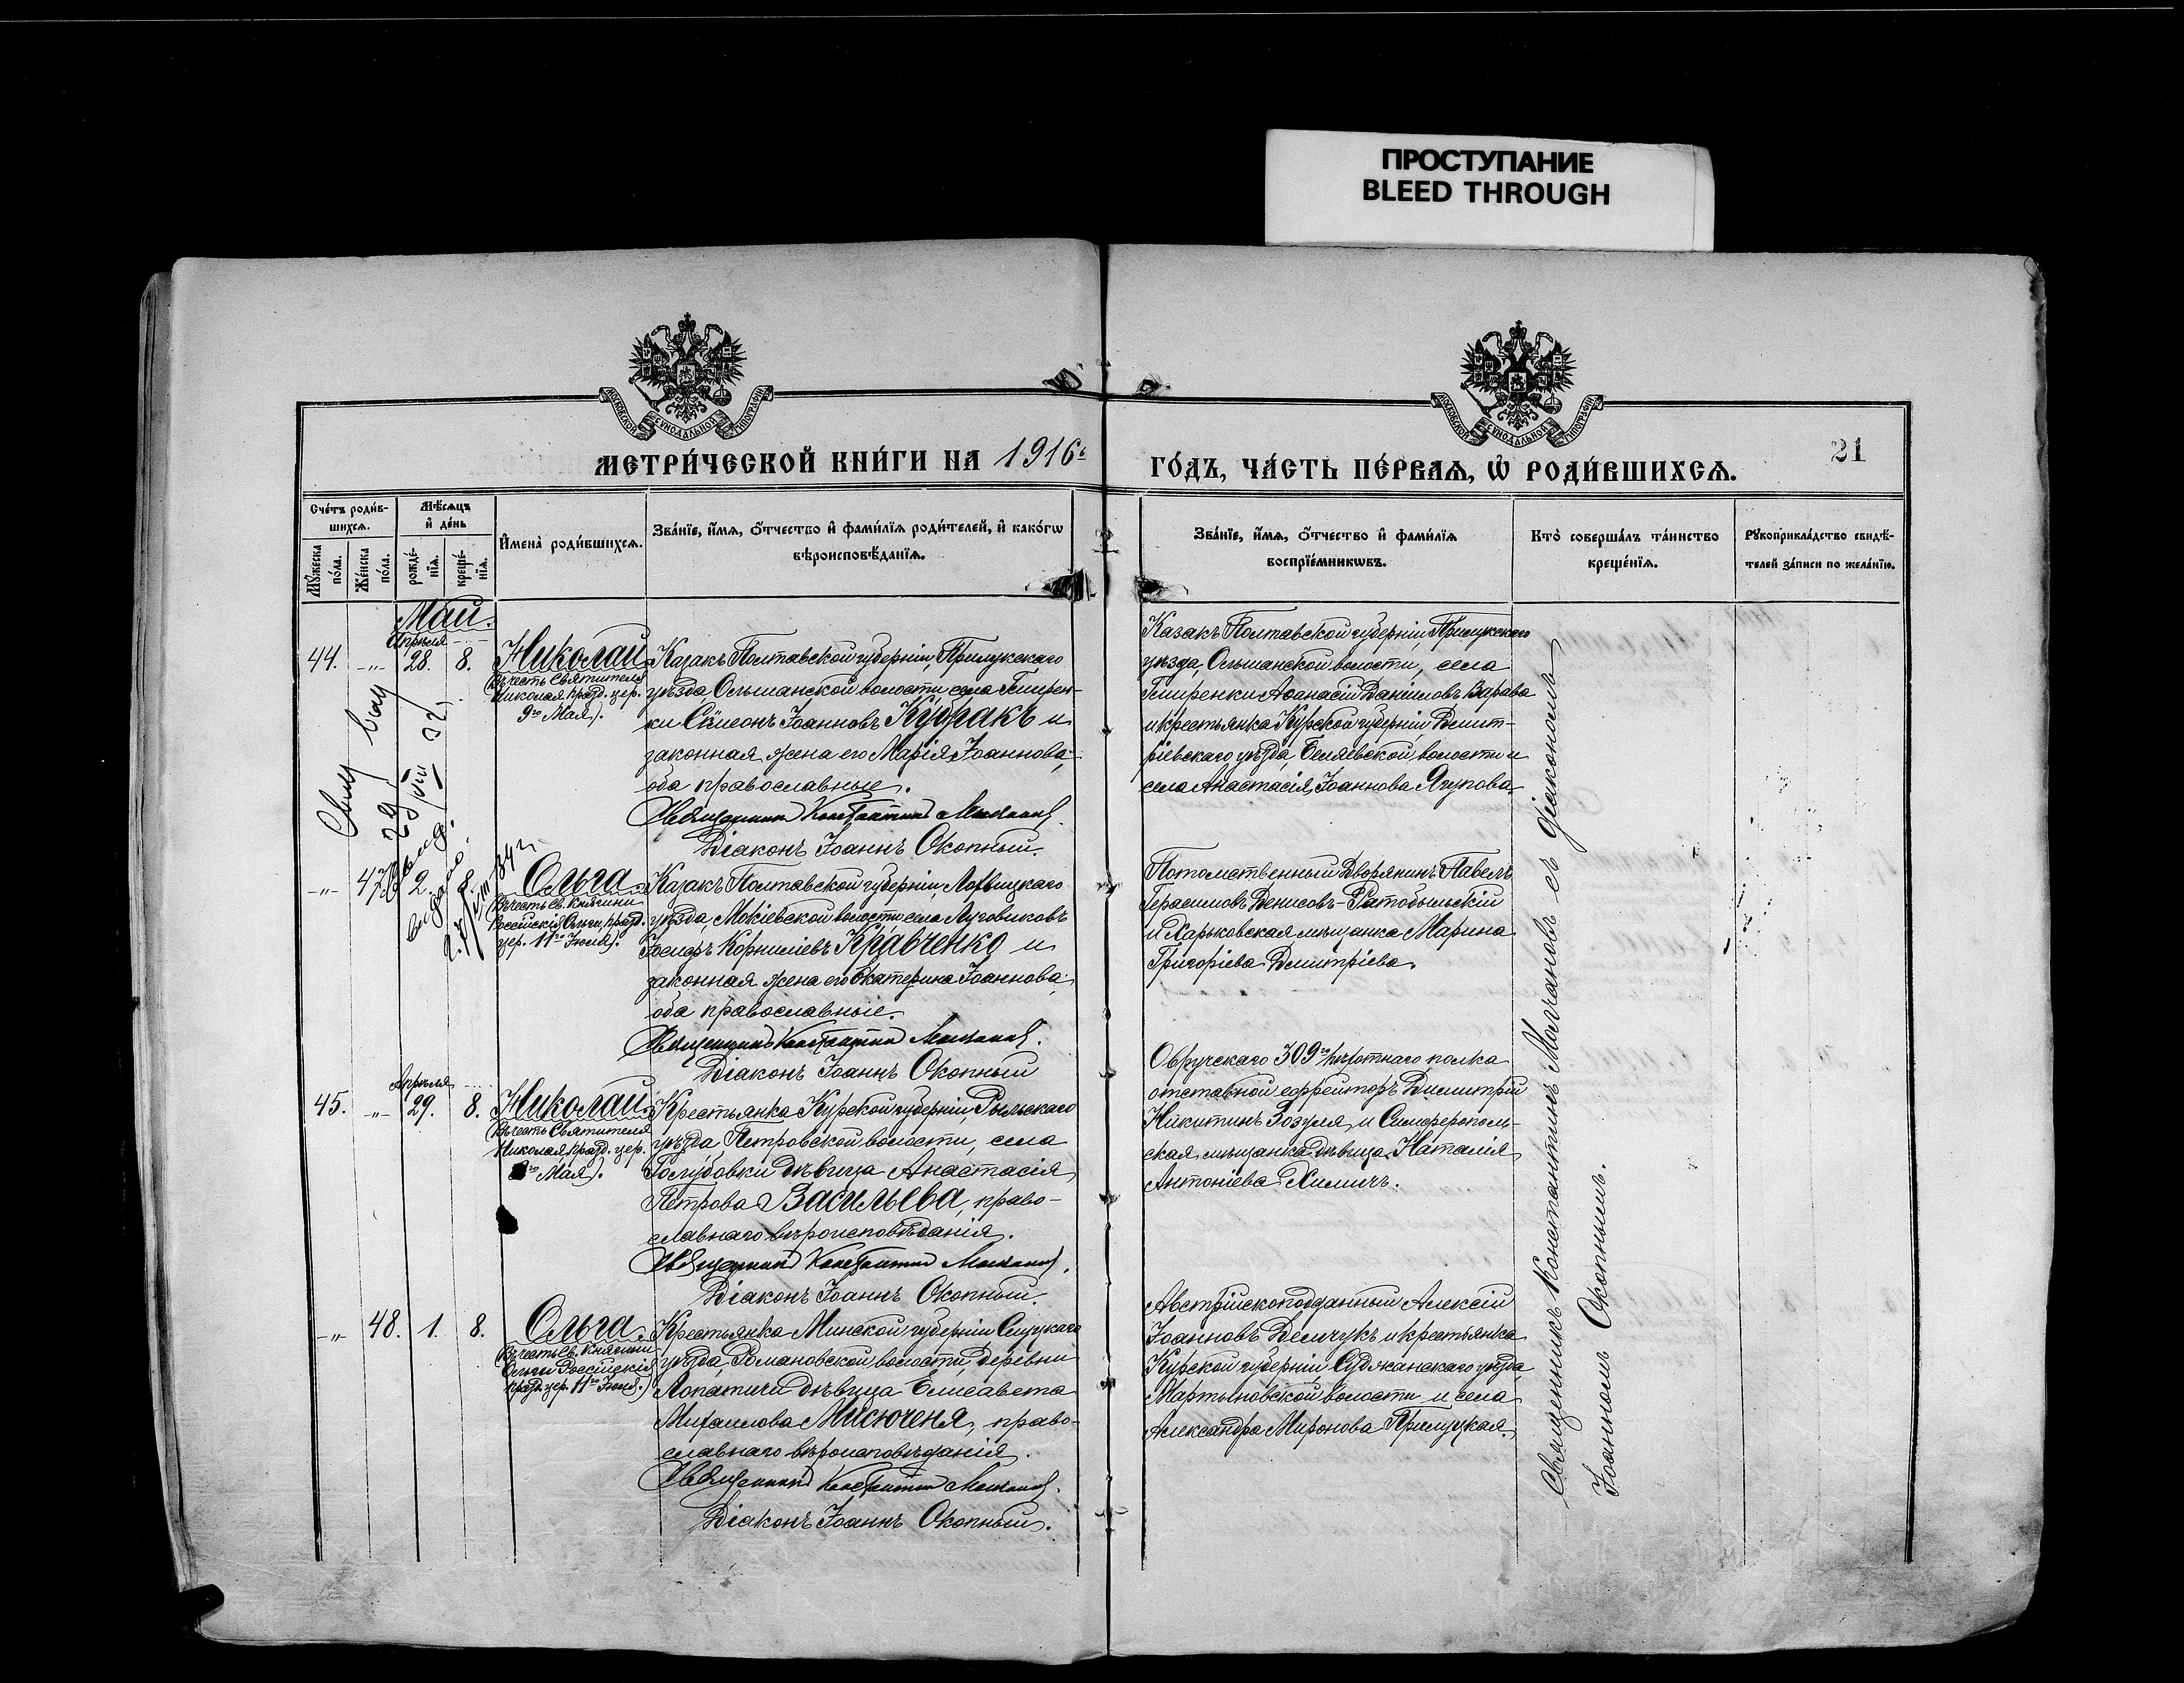 ПРОСТУПАНИЕ
BLEED THROUGH
МОСКОВСКОЙ СѴНОДАЛЬНОЙ ТИПОГРАФІИ
МОСКОВСКОЙ СѴНОДАЛЬНОЙ ТИПОГРАФІИ
МЕТРИ́ЧЕСКОЙ КНИ́ГИ НА 1916 г
ГО́ДЪ, ЧА́СТЬ ПЕ́РВАѦ, Ѡ҆ РОДИ́ВШИХСѦ.
21
Сче́тъ роди́в-
шихсѧ.
Мꙋ́жеска по́ла.
Же́нска по́ла.
Мѣ́сѧцъ
и҆ де́нь
рожде́-
нїѧ.
креще́-
нїѧ.
И҆мена̀ роди́вшихсѧ.
Зва́нїе, и҆́мѧ, ѻ҆́тчество и҆ фами́лїѧ роди́телей, и҆ како́гѡ
вѣроисповѣ́данїѧ.
Зва́нїе, и҆́мѧ, ѻ҆́тчество и҆ фами́лїѧ
воспрїе́мникѡвъ.
Кто̀ соверша́лъ та́инство
креще́нїѧ.
Рꙋкоприкла́дство свидѣ́-
телей за́писи по жела́нїю.
Май.
Апрѣля
44. -„- 28. 8. Николай
(Въ честь Святителя
Николая, празд. цер.
9го Мая).
Казакъ Полтавской губерніи, Прилукскаго
уѣзда, Ольшанской волости, села Гмирен-
ки Симеонъ Іоанновъ Кудракъ и
законная жена его Марія Іоаннова;
оба православные.
Священникъ Константинъ Молчановъ.
Діаконъ Іоаннъ Окопный.
Казакъ Полтавской губерніи, Прилукскаго
уѣзда, Ольшанской волости, села
Гмиренки Аѳанасій Даніиловъ Варава
и крестьянка Курской губерніи, Дмит-
ріевскаго уѣзда, Беляевской волости и
села Анастасія Іоаннова Ягупова.
-„- 47. 2. 8. Ольга
(Въ честь Св. Княгини
Россійскія Ольги, празд.
цер. 11го Іюля).
Казакъ Полтавской губерніи, Лохвицкаго
уѣзда, Мокіевской волости, села Луговиковъ
Іосифъ Корниліевъ Кравченко и
законная жена его Екатерина Іоаннова;
оба православные.
Священникъ Константинъ Молчановъ.
Діаконъ Іоаннъ Окопный
Потомственный Дворянинъ Павелъ
Герасимовъ Денисовъ-Ратобыльскій
и Харьковская мѣщанка Марина
Григоріева Дмитріева.
Апрѣля
45. -„- 29. 8. Николай
(Въ честь Святителя
Николая, празд. цер.
9го Мая).
Крестьянка Курской губерніи, Рыльскаго
уѣзда, Петровской волости, села
Голубовки дѣвица Анастасія
Петрова Васильева, право-
славнаго вѣроисповѣданія.
Священникъ Константинъ Молчановъ.
Діаконъ Іоаннъ Окопный.
Овручскаго 309го пѣхотнаго полка
отставной ефрейторъ Димитрій
Никитинъ Зозуля, и Симферополь-
ская мѣщанка дѣвица Наталія
Антоніева Химичъ.
-„- 48. 1. 8. Ольга
(Въ честь Св. Княгини
Ольги Россійскія
празд. цер. 11го Іюля.)
Крестьянка Минской губерніи Слуцкаго
уѣзда, Романовской волости, деревни
Лопатичи дѣвица Елисавета
Михаилова Мисюченя, право-
славнаго вѣроисповѣданія.
Священникъ Константинъ Молчановъ.
Діаконъ Іоаннъ Окопный.
Австрійскоподданный Алексій
Іоанновъ Демчукъ и крестьянка
Курской губерніи, Суджанскаго уѣзда,
Мартыновской волости и села
Александра Миронова Прилуцкая.
Священникъ Константинъ Молчановъ съ діакономъ
Іоанномъ Окопнымъ.